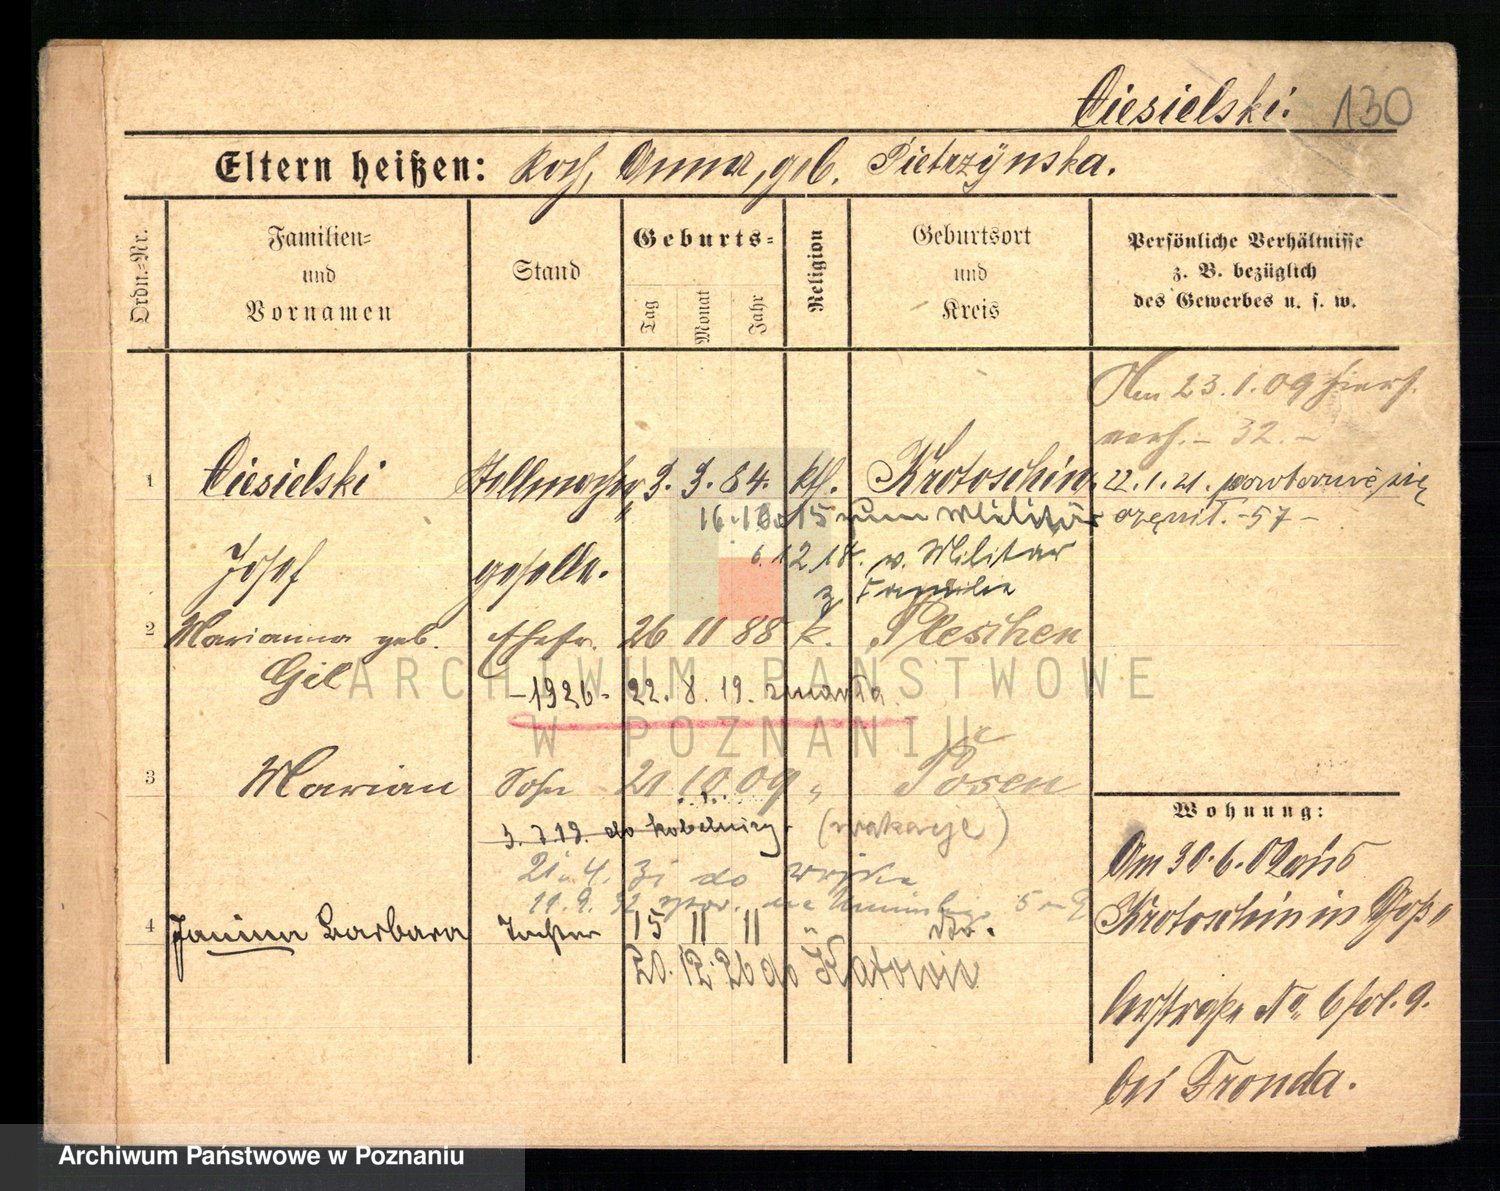 Ciesielski. 130
Eltern heißen: Roch, Anna, geb. Pietrzynska.
Ordn.=Nr.
Familien=
und
Vornamen
Stand
Geburts=
Tag
Monat
Jahr
Religion
Geburtsort
und
Kreis
Persönliche Verhältnisse
z. B. bezüglich
des Gewerbes u. s. w.
Am 23.1.09 hiers.
verh. - 32. -
1 Ciesielski Stellmacher 3. 3. 84. kth. Krotoschin
22.1.21. powtórnie się
ożenił. -57-
16.10.15 zum Militär
Josef geselle.
6.12.18. v. Militär
z Familie
2 Marianna geb. Ehefr. 26 11 88 k. Pleschen
Gil
-1926- 22. 8. 19. zmarła
ARCHIWUM PAŃSTWOWE
W POZNANIU
3 Marian Sohn 21 10 09 " Posen
3. 7 19. do Kobelnicy. (wakacje)
21. 4. 31 do wojska
11.9.32
4 Janina Barbara Tochter 15 11 11 " dto.
20.12.26 do Katowic
Wohnung:
Am 30.6.02 aus
Krotoschin in
No 6 fol. 9.
bei Fronda.
Archiwum Państwowe w Poznaniu